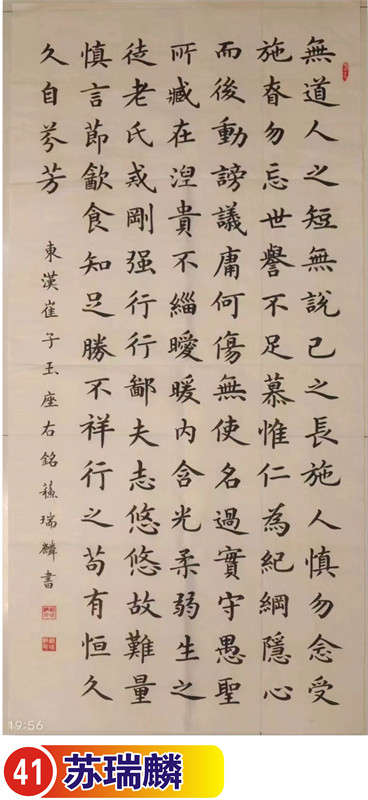 無道人之短無說己之長施人慎勿念受
施眘勿忘世譽不足慕惟仁為紀綱隱心
而後動謗議庸何傷無使名過實守愚聖
所臧在湼貴不緇曖暖内含光柔弱生之
徒老氏戒剛强行行鄙夫志悠悠故難量
慎言節㱃食知足勝不祥行之苟有恒久
久自芬芳
東漢崔子玉座右銘蘓瑞麟書
19:56
41 苏瑞麟